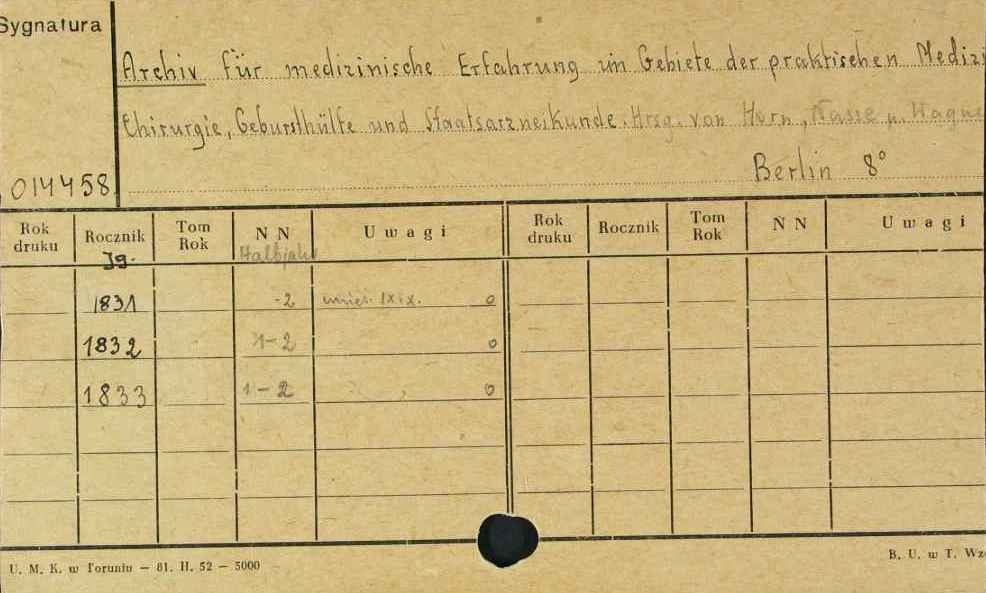 Sygnatura
Archiv für medizinische Erfahrung im Gebiete der praktischen Medizi
Chirurgie, Geburtshülfe und Staatsarzneikunde. Hrsg. von Horn, Nasse u. Wagne
Berlin 8°
014458
Rok druku Rocznik Tom Rok N N Uwagi Rok druku Rocznik Tom Rok N N Uwagi
Jg. Halbjahr
1831 -2 IX i X. 0
1832 1-2 0
1833 1-2 0
U. M. K. w Toruniu — 81. II. 52 — 5000
B. U. w T. Wz